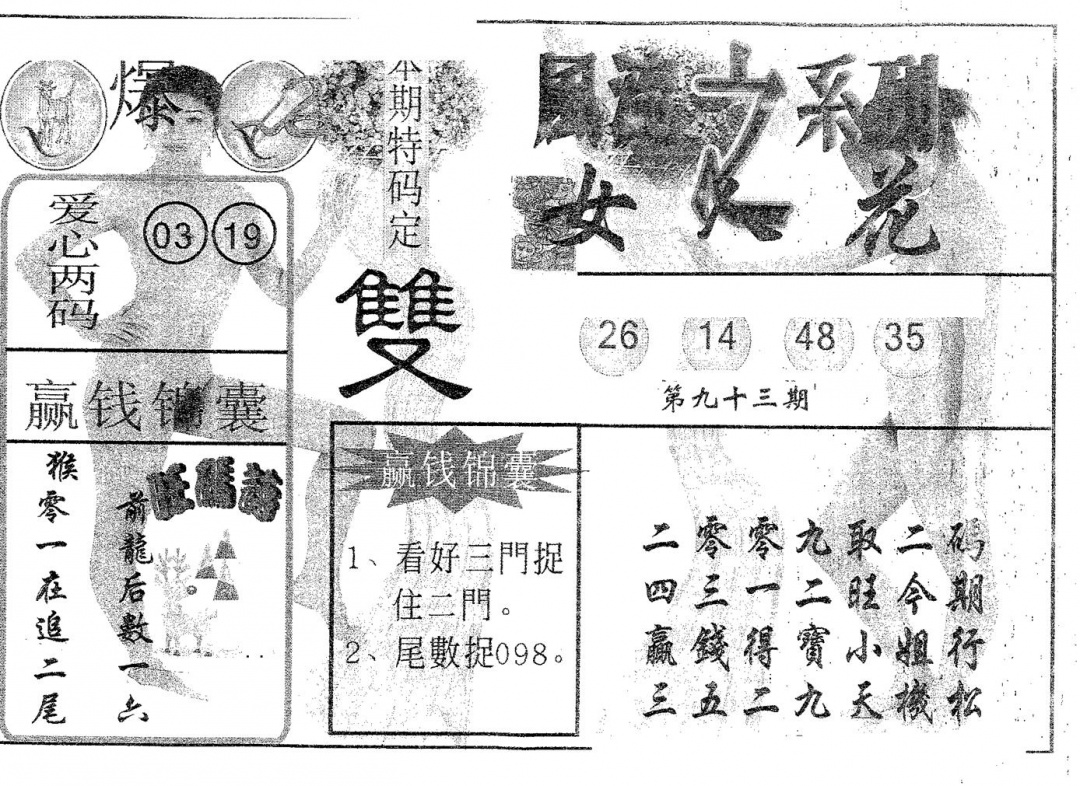 之系列
女
花
爆
本期特码定
雙
爱心两码
03 19
26 14 48 35
第九十三期
赢钱锦囊
旺碼詩
前龍后数一六
猴零一在追二尾
赢钱锦囊
1、看好三門捉
住二門。
2、尾數捉098。
码期行松
二今姐機
取旺小天
九二寶九
零一得二
零三錢五
二四贏三